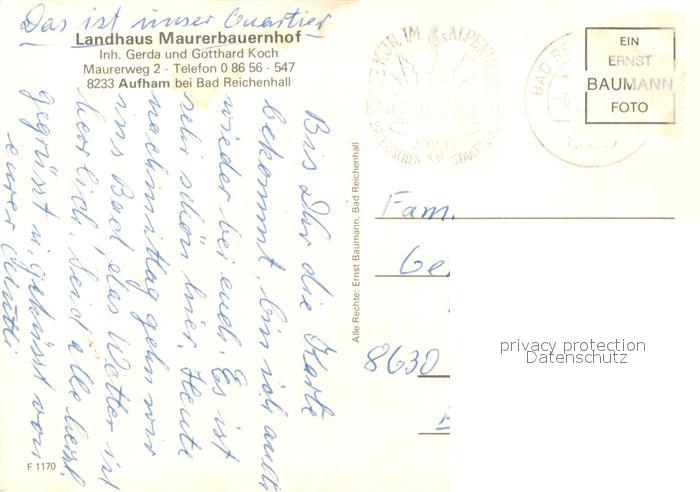 Das ist unser Quartier
Landhaus Maurerbauernhof
Inh. Gerda und Gotthard Koch
Maurerweg 2 - Telefon 0 86 56 - 547
8233 Aufham bei Bad Reichenhall
Bis Ihr die Karte
bekommt, bin ich auch
wieder bei euch. Es ist
sehr schön hier. Heute
nachmittag gehn wir
ins Bad, das Wetter ist
herrlich. Seid alle herzl.
gegrüsst u. geküsst von
eurer
F 1170
Alle Rechte: Ernst Baumann, Bad Reichenhall
KUR IM
ALPEN
BAD REICHENHALL
BAYERISCHES
STAATSBAD
BAD RE
EIN
ERNST
BAUMANN
FOTO
Fam.
Ge
8630
privacy protection
Datenschutz